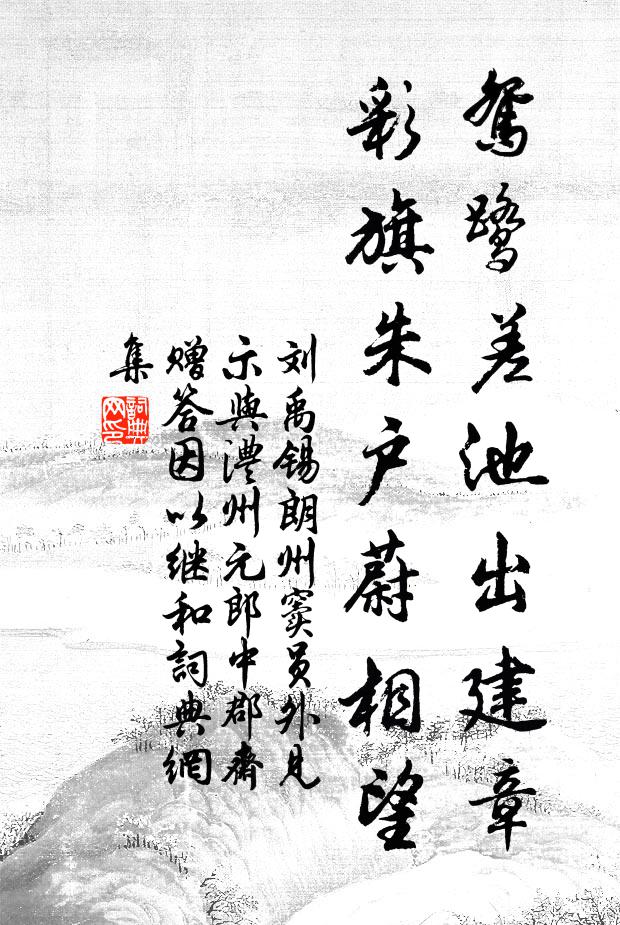 鸳鹭差池出建章
彩旗朱户蔚相望
刘禹锡朗州窦员外见
示與澧州元郎中郡斋
赠答因以继和詞典網
集
詞典
网印